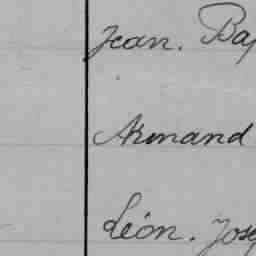 Jean. Bap
Armand
Léon. Jose